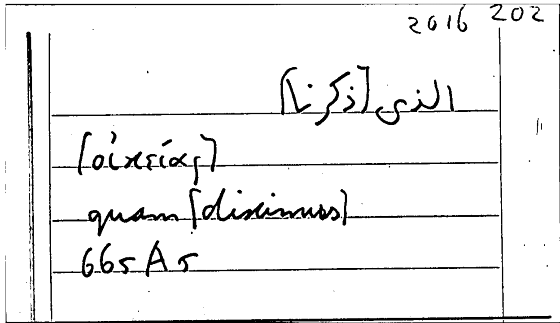 2016 202
الذى [ذكرنا]
[οἰκείας]
quam [diximus]
665 A 5